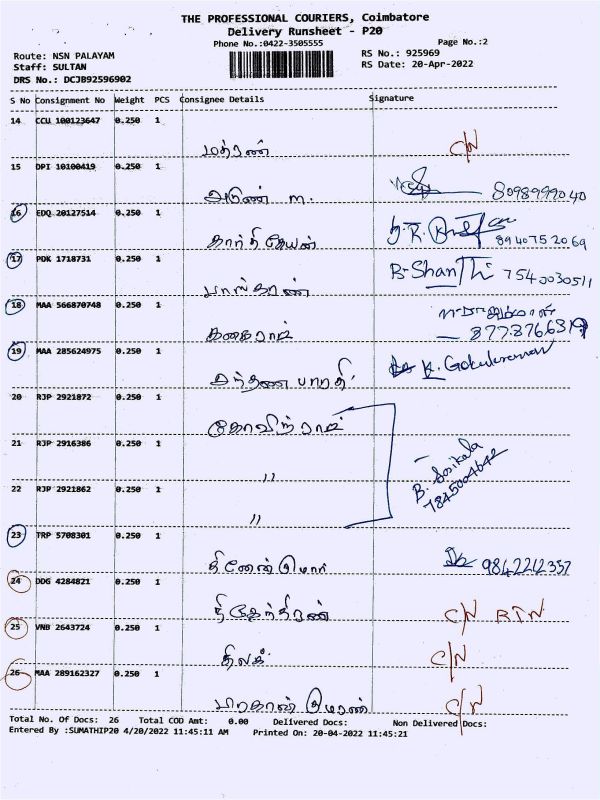 THE PROFESSIONAL COURIERS, Coimbatore
Delivery Runsheet - P20
Phone No.:0422-3505555
Page No.:2
Route: NSN PALAYAM
RS No.: 925969
Staff: SULTAN
RS Date: 20-Apr-2022
DRS No.: DCJB92596902
S No Consignment No Weight PCS Consignee Details Signature
14 CCU 100123647 0.250 1
C/N
15 DPI 10100419 0.250 1
அருண் m. 8098999040
16 EDQ 20127514 0.250 1
கார்திகேயன் 8940752069
17 PDK 1718731 0.250 1
பாஸ்கரன் B-Shanthi 7540030511
18 MAA 566870748 0.250 1
8778766319
19 MAA 285624975 0.250 1
பாரதி K. Gokulraman
20 RJP 2921872 0.250 1
கோவிந்ராஜ்
21 RJP 2916386 0.250 1
"
B. Sasikala
7845004642
22 RJP 2921862 0.250 1
"
23 TRP 5708301 0.250 1
தினேஸ்குமார் 9842212357
24 DDG 4284821 0.250 1
C/N RTN
25 VNB 2643724 0.250 1
திலக் C/N
26 MAA 289162327 0.250 1
C/N
Total No. Of Docs: 26 Total COD Amt: 0.00 Delivered Docs: Non Delivered Docs:
Entered By :SUMATHIP20 4/20/2022 11:45:11 AM Printed On: 20-04-2022 11:45:21